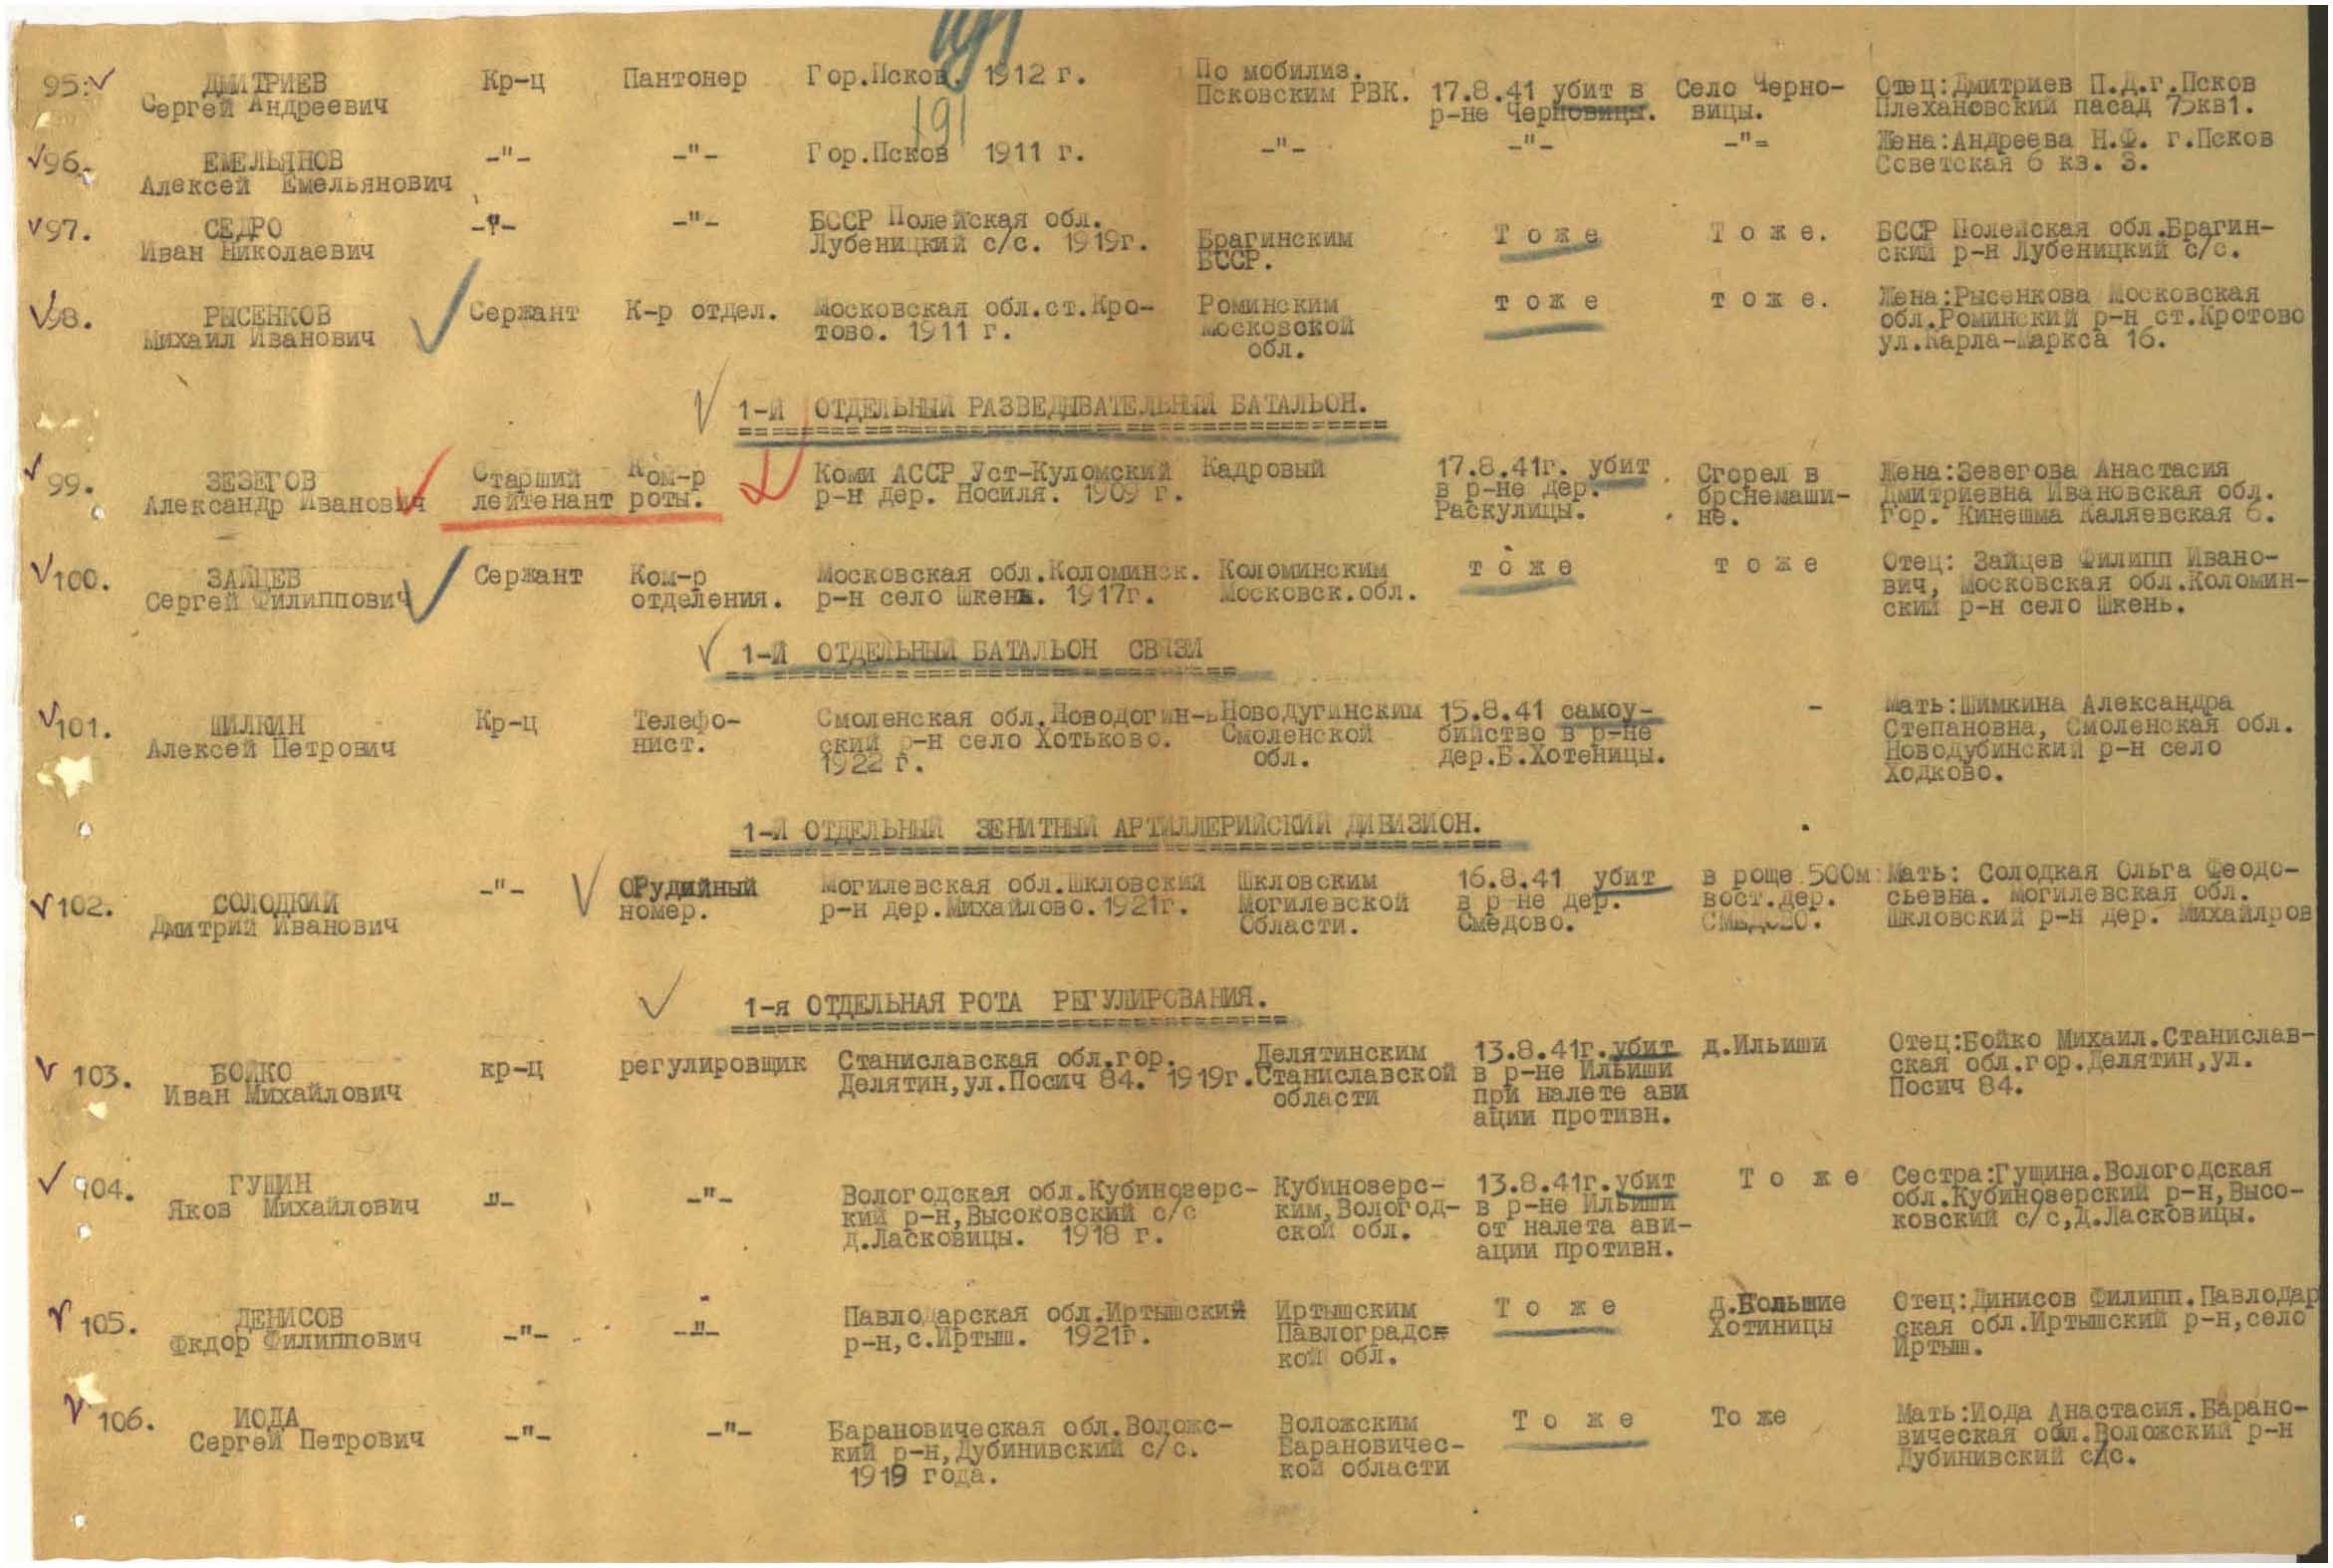 191
95. ДМИТРИЕВ Сергей Андреевич Кр-ц Пантонер Гор.Псков. 1912 г. По мобилиз. Псковским РВК. 17.8.41 убит в р-не Черновицы. Село Черно- вицы. Отец:Дмитриев П.Д.г.Псков Плехановский пасад 75кв1.
96. ЕМЕЛЬЯНОВ Алексей Емельянович -"- -"- Гор.Псков 1911 г. -"- -"- -"= Жена:Андреева Н.Ф. г.Псков Советская 6 кв. 3.
97. СЕДРО Иван Николаевич -"- -"- БССР Полейская обл. Лубеницкий с/с. 1919г. Брагинским БССР. Т о ж е Т о ж е. БССР Полейская обл.Брагин- ский р-н Лубеницкий с/с.
98. РЫСЕНКОВ Михаил Иванович Сержант К-р отдел. Московская обл.ст.Кро- тово. 1911 г. Роминским московской обл. т о ж е т о ж е. Жена:Рысенкова Московская обл.Роминский р-н ст.Кротово ул.Карла-Маркса 16.
1-Й ОТДЕЛЬНЫЙ РАЗВЕДЫВАТЕЛЬНЫЙ БАТАЛЬОН.
99. ЗЕЗЕГОВ Александр Иванович Старший лейтенант Ком-р роты. Коми АССР Уст-Куломский р-н дер. Носиля. 1909 г. Кадровый 17.8.41г. убит в р-не дер. Раскулицы. Сгорел в бронемаши- не. Жена:Зезегова Анастасия Дмитриевна Ивановская обл. Гор. Кинешма Каляевская 6.
100. ЗАЙЦЕВ Сергей Филиппович Сержант Ком-р отделения. Московская обл.Коломинск. р-н село Шкень. 1917г. Коломинским Московск.обл. т о ж е т о ж е Отец: Зайцев Филипп Ивано- вич, Московская обл.Коломин- ский р-н село Шкень.
1-Й ОТДЕЛЬНЫЙ БАТАЛЬОН СВЯЗИ
101. ШИЛКИН Алексей Петрович Кр-ц Телефо- нист. Смоленская обл.Новодогин- ский р-н село Хотьково. 1922 г. Новодугинским Смоленской обл. 15.8.41 самоу- бийство в р-не дер.Б.Хотеницы. - Мать:Шимкина Александра Степановна, Смоленская обл. Новодубинский р-н село Ходково.
1-Й ОТДЕЛЬНЫЙ ЗЕНИТНЫЙ АРТИЛЛЕРИЙСКИЙ ДИВИЗИОН.
102. СОЛОДКИЙ Дмитрий Иванович -"- ОРудийный номер. Могилевская обл.Шкловский р-н дер.Михайлово.1921г. Шкловским Могилевской Области. 16.8.41 убит в р-не дер. Смедово. в роще 500м вост.дер. Смедово. Мать: Солодкая Ольга Феодо- сьевна. Могилевская обл. Шкловский р-н дер. Михайлров
1-я ОТДЕЛЬНАЯ РОТА РЕГУЛИРОВАНИЯ.
103. БОЙКО Иван Михайлович кр-ц регулировщик Станиславская обл.гор. Делятин,ул.Посич 84. 1919г. Делятинским Станиславской области 13.8.41г.убит в р-не Ильиши при налете ави ации противн. д.Ильиши Отец:Бойко Михаил.Станислав- ская обл.гор.Делятин,ул. Посич 84.
104. ГУЩИН Яков Михайлович -"- -"- Вологодская обл.Кубинозерс- кий р-н,Высоковский с/с д.Ласковицы. 1918 г. Кубинозерс- ким,Вологод- ской обл. 13.8.41г.убит в р-не Ильиши от налета ави- ации противн. Т о ж е Сестра:Гущина.Вологодская обл.Кубинозерский р-н,Высо- ковский с/с,д.Ласковицы.
105. ДЕНИСОВ Фкдор Филиппович -"- -"- Павлодарская обл.Иртышский р-н,с.Иртыш. 1921г. Иртышским Павлоградск кой обл. Т о ж е д.Большие Хотиницы Отец:Динисов Филипп.Павлодар ская обл.Иртышский р-н,село Иртыш.
106. ИОДА Сергей Петрович -"- -"- Барановическая обл.Воложс- кий р-н,Дубинивский с/с. 1919 года. Воложским Барановичес- кой области Т о ж е То же Мать:Иода Анастасия.Барано- вическая обл.Воложский р-н Дубинивский с/с.